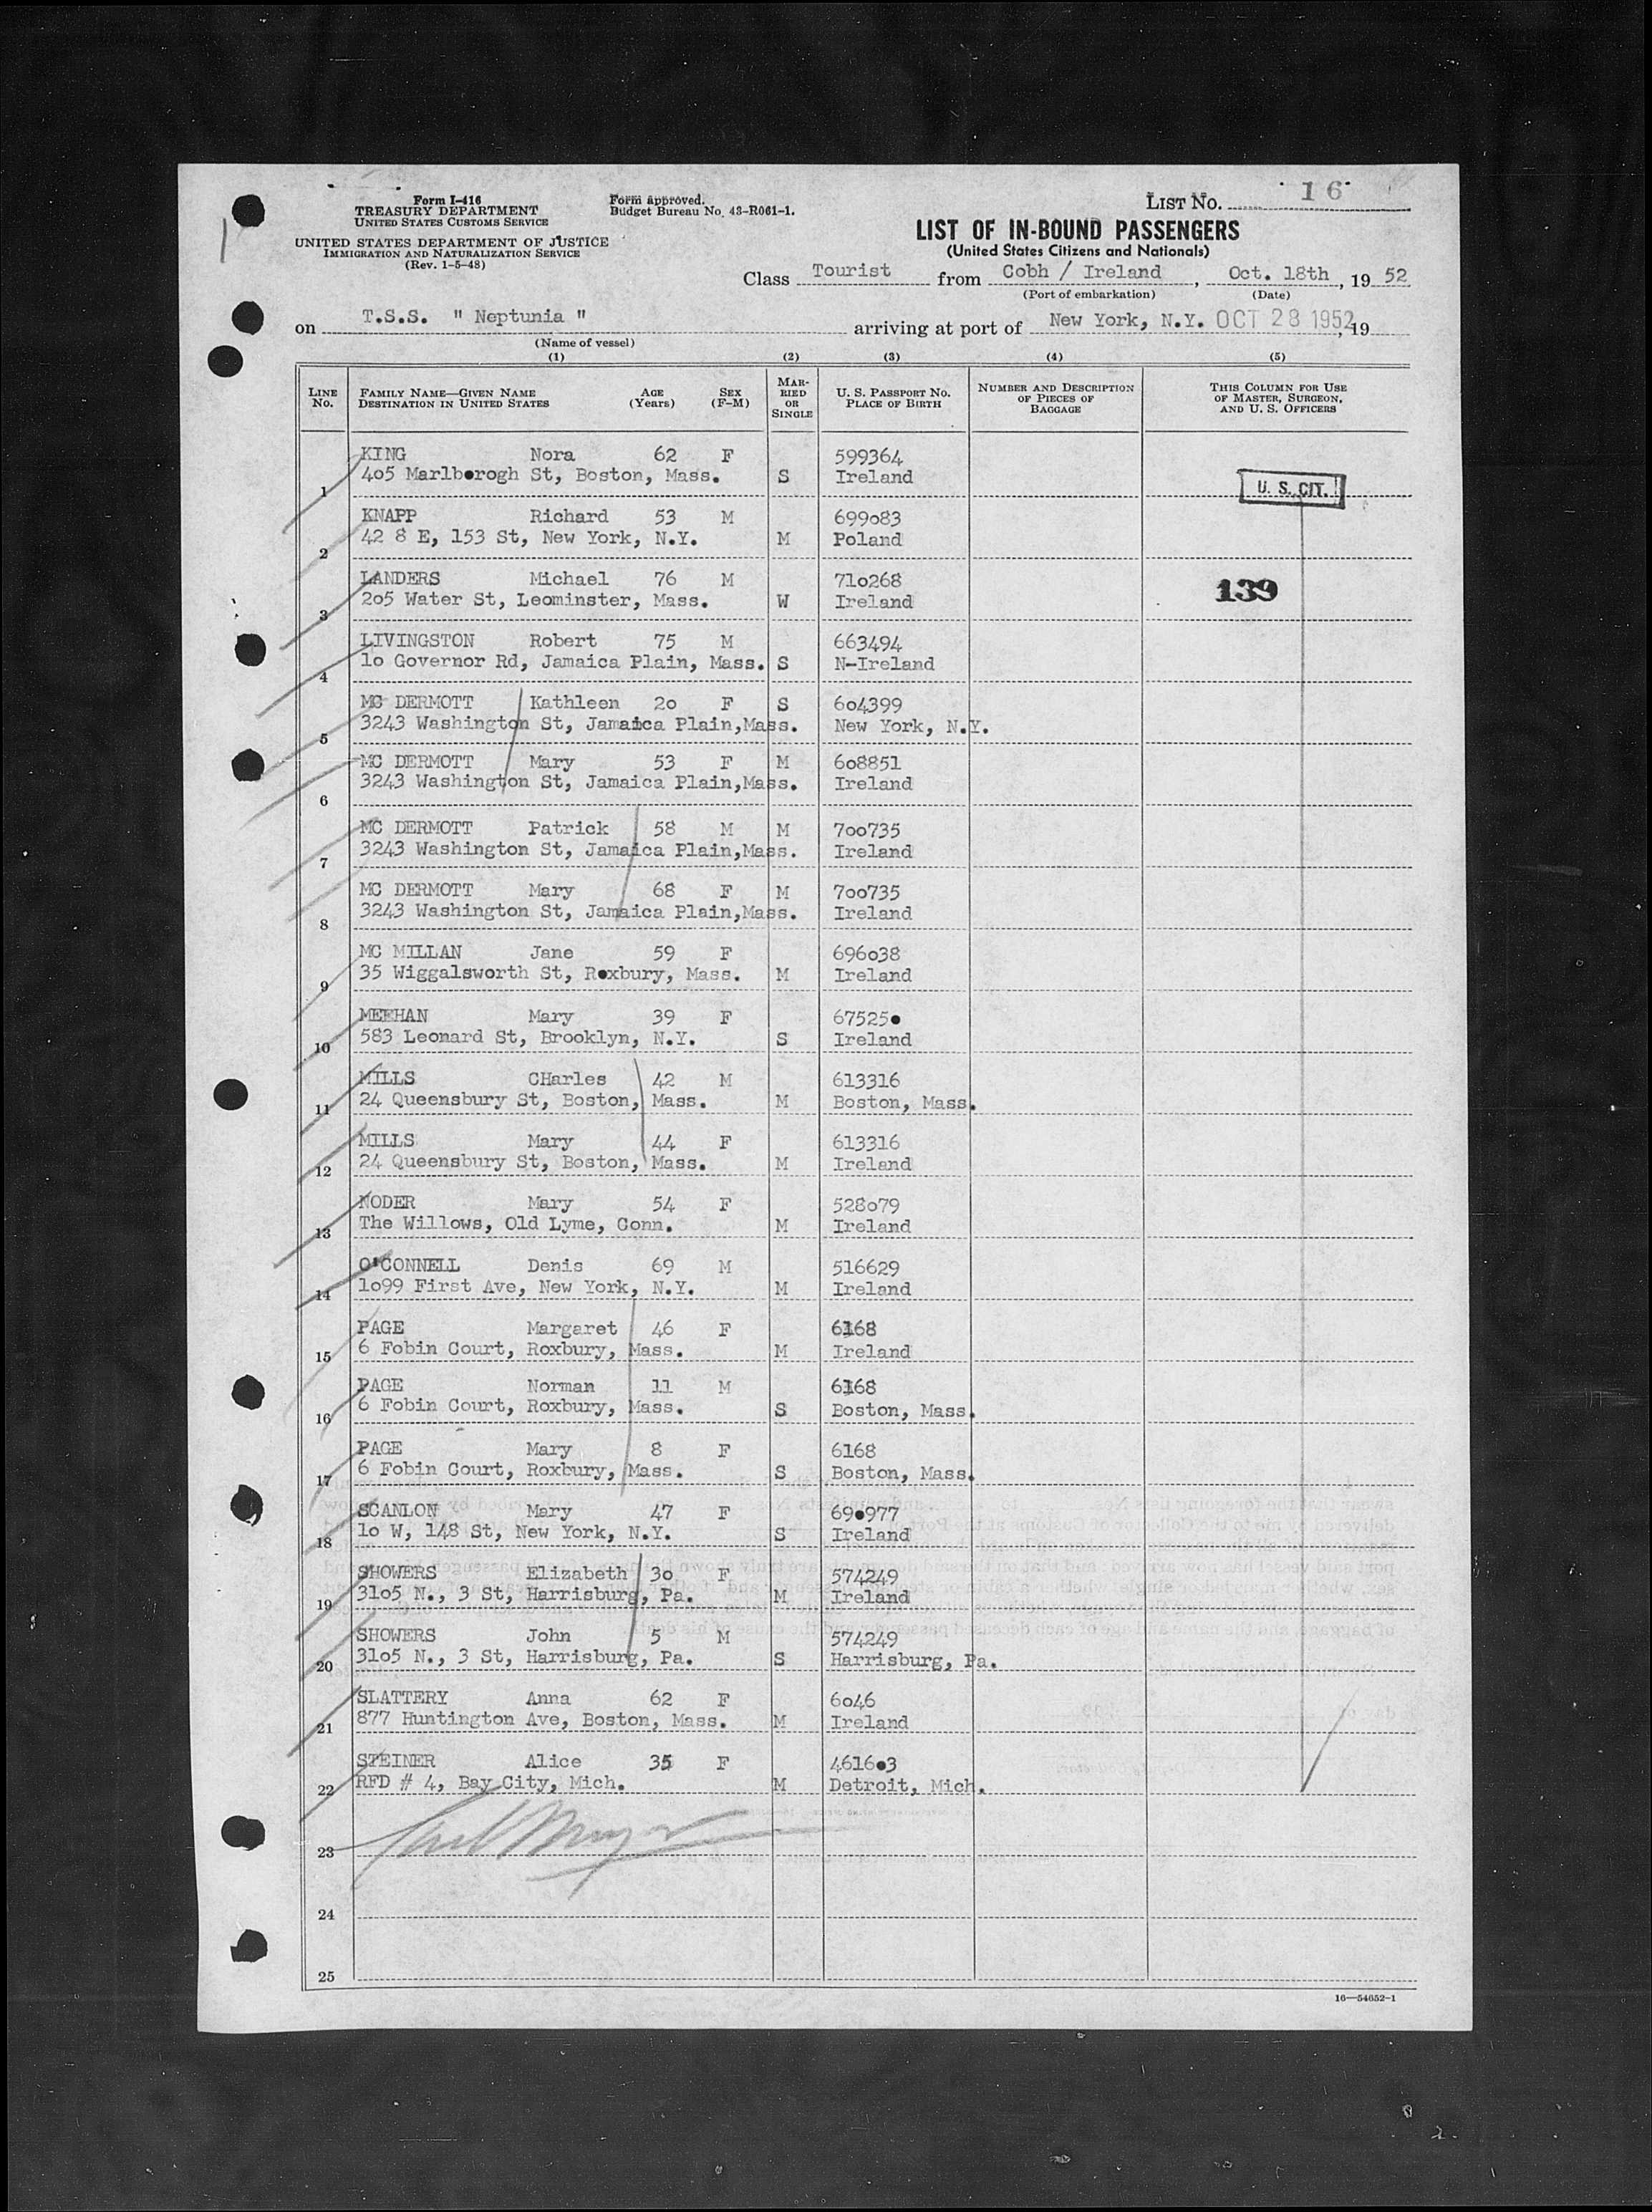 Form I-416
TREASURY DEPARTMENT
UNITED STATES CUSTOMS SERVICE
UNITED STATES DEPARTMENT OF JUSTICE
IMMIGRATION AND NATURALIZATION SERVICE
(Rev. 1-5-48)
Form approved.
Budget Bureau No. 43-R061-1.
LIST NO. 16
LIST OF IN-BOUND PASSENGERS
(United States Citizens and Nationals)
Class Tourist from Cobh / Ireland, Oct. 18th, 19 52
(Port of embarkation) (Date)
on T.S.S. " Neptunia " arriving at port of New York, N.Y. OCT 28 1952, 19
(Name of vessel)
(1) (2) (3) (4) (5)
LINE NO. FAMILY NAME—GIVEN NAME DESTINATION IN UNITED STATES AGE (Years) SEX (F-M) MARRIED OR SINGLE U. S. PASSPORT NO. PLACE OF BIRTH NUMBER AND DESCRIPTION OF PIECES OF BAGGAGE THIS COLUMN FOR USE OF MASTER, SURGEON, AND U. S. OFFICERS
KING Nora 62 F 599364
1 405 Marlborogh St, Boston, Mass. S Ireland U. S. CIT.
KNAPP Richard 53 M 699083
2 42 8 E, 153 St, New York, N.Y. M Poland
LANDERS Michael 76 M 710268 139
3 205 Water St, Leominster, Mass. W Ireland
LIVINGSTON Robert 75 M 663494
4 10 Governor Rd, Jamaica Plain, Mass. S N-Ireland
MC DERMOTT Kathleen 20 F S 604399
5 3243 Washington St, Jamaica Plain,Mass. New York, N.Y.
MC DERMOTT Mary 53 F M 608851
6 3243 Washington St, Jamaica Plain,Mass. Ireland
MC DERMOTT Patrick 58 M M 700735
7 3243 Washington St, Jamaica Plain,Mass. Ireland
MC DERMOTT Mary 68 F M 700735
8 3243 Washington St, Jamaica Plain,Mass. Ireland
MC MILLAN Jane 59 F 696038
9 35 Wiggalsworth St, Roxbury, Mass. M Ireland
MEEHAN Mary 39 F 675250
10 583 Leonard St, Brooklyn, N.Y. S Ireland
MILLS CHarles 42 M 613316
11 24 Queensbury St, Boston, Mass. M Boston, Mass.
MILLS Mary 44 F 613316
12 24 Queensbury St, Boston, Mass. M Ireland
NODER Mary 54 F 528079
13 The Willows, Old Lyme, Conn. M Ireland
O'CONNELL Denis 69 M 516629
14 1099 First Ave, New York, N.Y. M Ireland
PAGE Margaret 46 F 6168
15 6 Fobin Court, Roxbury, Mass. M Ireland
PAGE Norman 11 M 6168
16 6 Fobin Court, Roxbury, Mass. S Boston, Mass.
PAGE Mary 8 F 6168
17 6 Fobin Court, Roxbury, Mass. S Boston, Mass.
SCANLON Mary 47 F 690977
18 10 W, 148 St, New York, N.Y. S Ireland
SHOWERS Elizabeth 30 F 574249
19 3105 N., 3 St, Harrisburg, Pa. M Ireland
SHOWERS John 5 M 574249
20 3105 N., 3 St, Harrisburg, Pa. S Harrisburg, Pa.
SLATTERY Anna 62 F 6046
21 877 Huntington Ave, Boston, Mass. M Ireland
STEINER Alice 35 F 461603
22 RFD # 4, Bay City, Mich. M Detroit, Mich.
23
24
25
16—54652-1